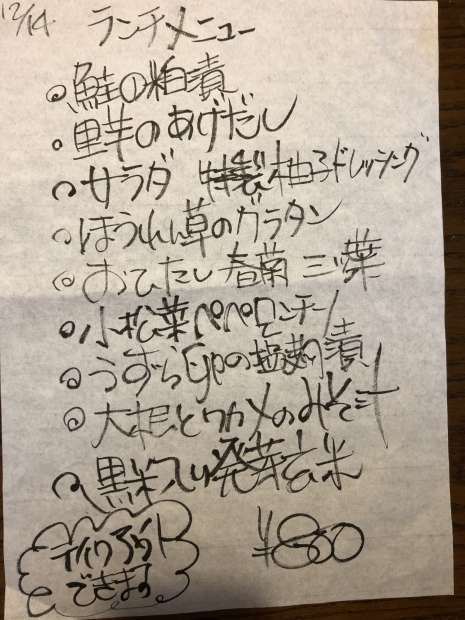 12/14 ランチメニュー
◎鮭の粕漬
○里芋のあげだし
○サラダ 特製柚子ドレッシング
○ほうれん草のグラタン
◎おひたし 春菊 三ッ葉
◎小松菜ペペロンチーノ
◎うずら卵の塩麹漬
◎大根とワカメのみそ汁
○黒米入り発芽玄米
テイクアウト
できます
¥800